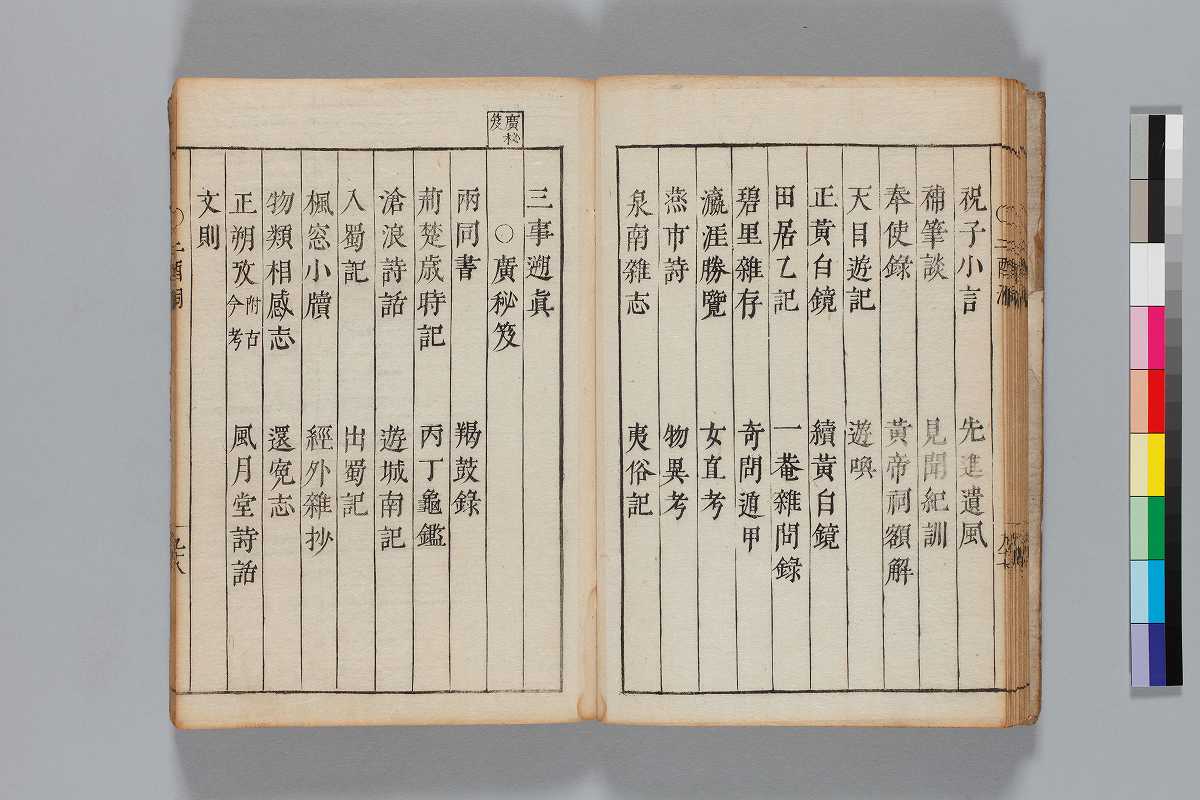 祝子小言　先進遺風
補筆談　見聞紀訓
奉使錄　黃帝祠額解
天目遊記　遊喚
正黃白鏡　續黃白鏡
田居乙記　一菴雜問錄
碧里雜存　奇問遁甲
瀛涯勝覽　女直考
燕市詩　物異考
泉南雜志　夷俗記
三事遡眞
廣秘笈
○廣秘笈
兩同書　羯鼓錄
荊楚歲時記　丙丁龜鑑
滄浪詩話　遊城南記
入蜀記　出蜀記
楓窓小牘　經外雜抄
物類相感志　還寃志
正朔攷附古今考　風月堂詩話
文則